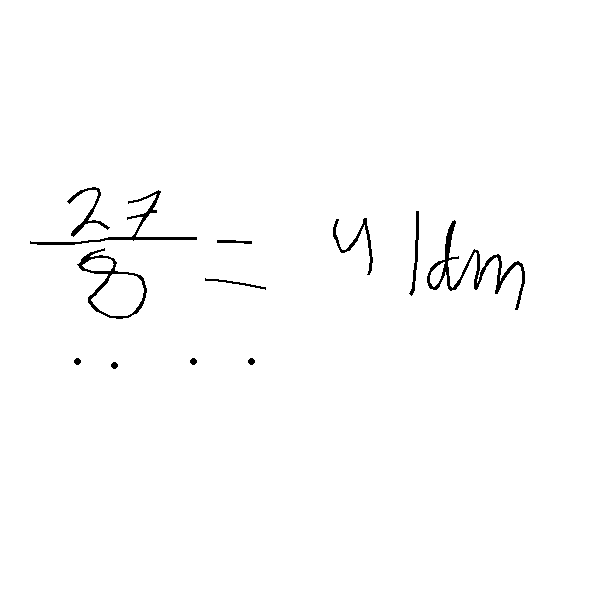 27
8 = 4 | dm
. . . .